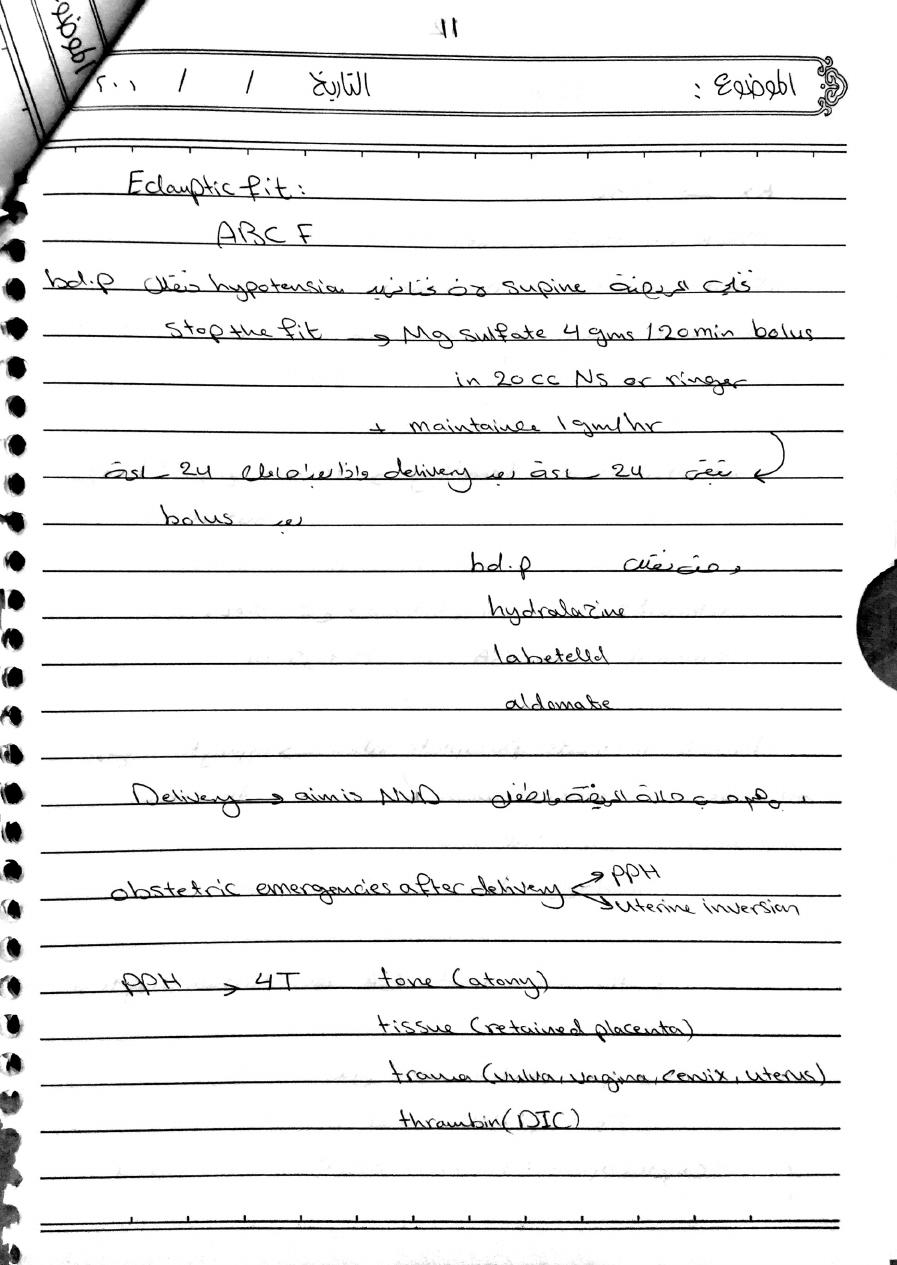 11
الموضوع
الموضوع : التاريخ / / ٢٠٠١
Eclamptic fit :
ABC F
supine من hypotension bd.p
Stop the fit → Mg sulfate 4 gms / 20 min bolus
in 20 cc NS or ringer
+ maintaince 1 gm/hr
24 ساعة بعد delivery 24 ساعة
بعد bolus
bd.p
hydralazine
labetelol
aldomate
Delivery → aim is NVD حالة المريضة والطفل
obstetric emergencies after delivery
PPH
uterine inversion
PPH → 4T tone (atony)
tissue (retained placenta)
trauma (vulva, vagina, cervix, uterus)
thrombin (DIC)